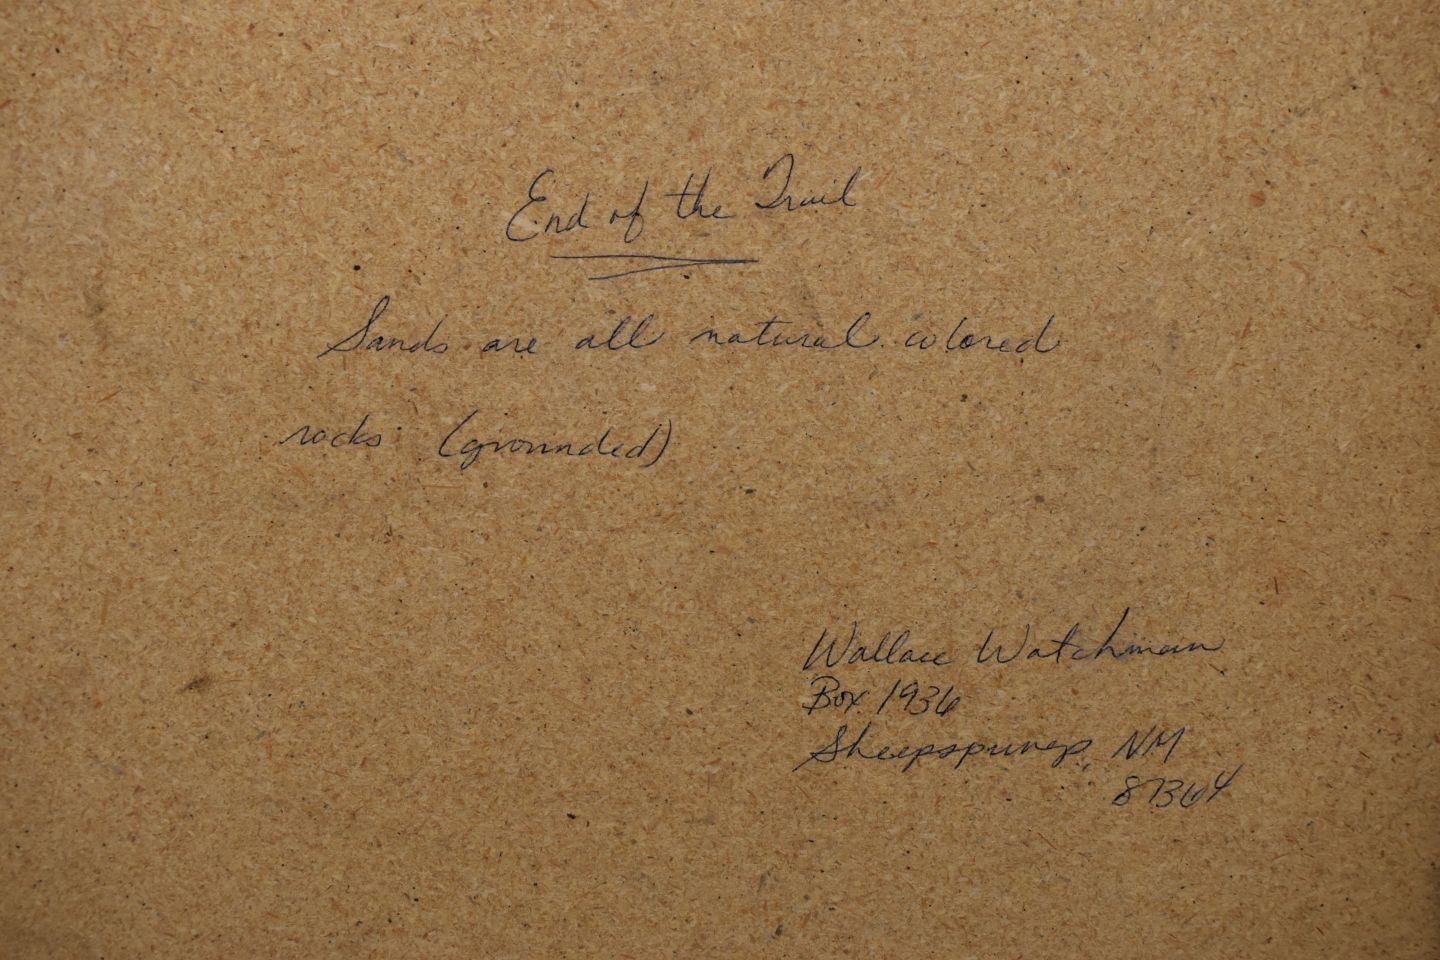 End of the Trail
Sands are all natural colored
rocks (grounded)
Wallace Watchman
Box 1936
Sheepsprings, NM
87364